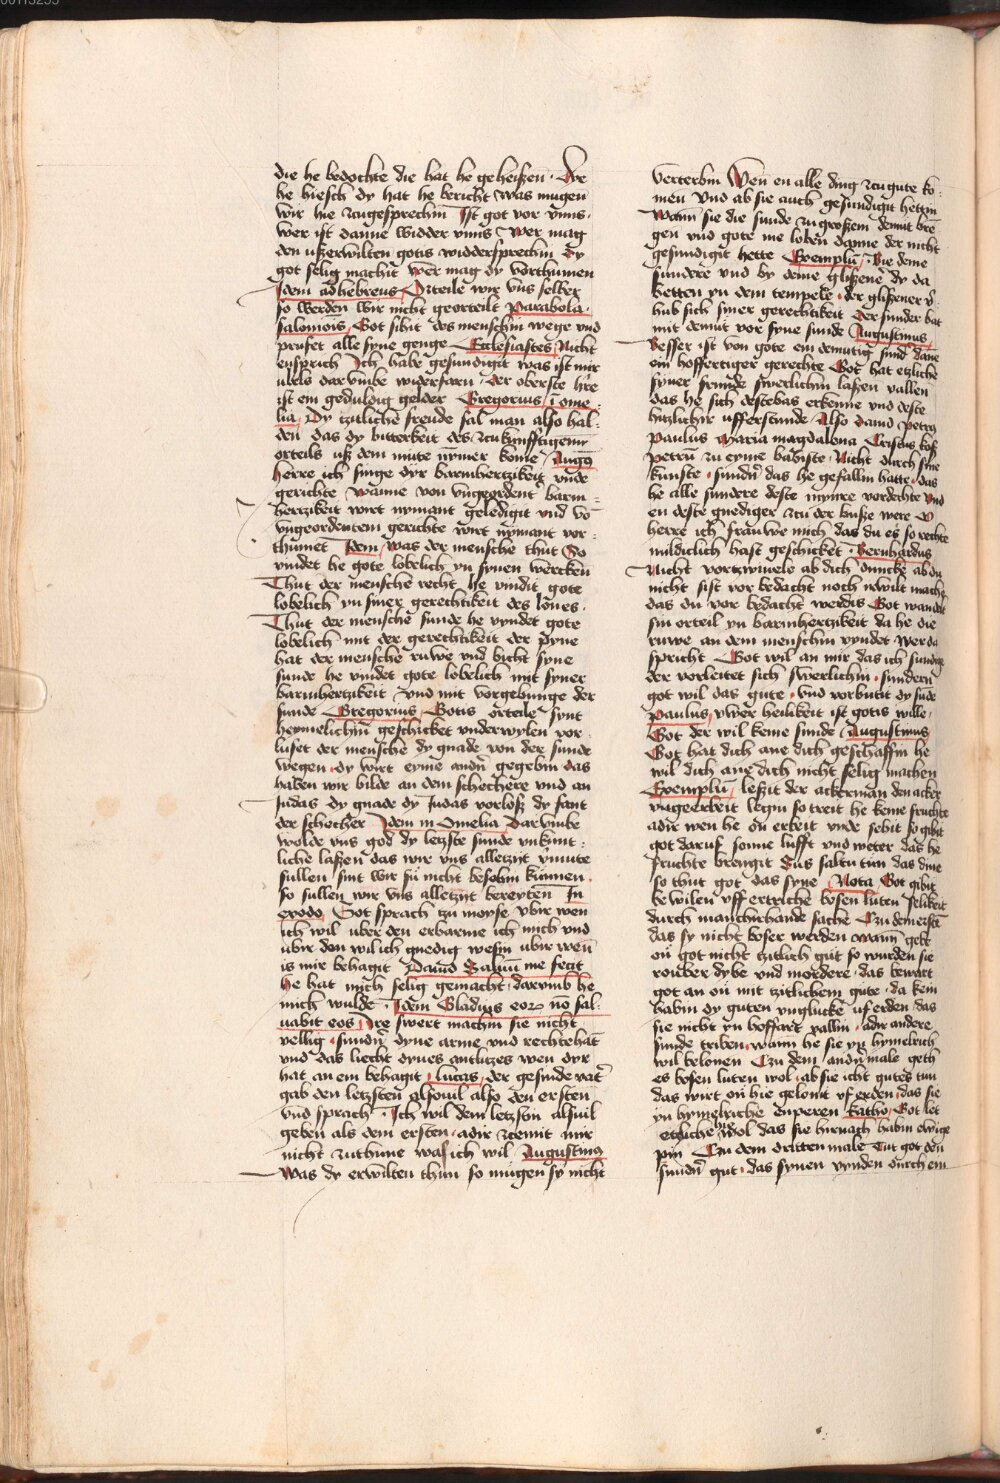 die he bedochte die hat he geheiszen · Dye
he hiesch dy hat he bericht Was mugen
wir hie zcugesprechin Ist got vor vnns ·
wer ist danne widder vnns Wer mag
den uszerwilten gotis widdersprechin Dy
got selig machit Wer mag dy vorthumen
Idem ad hebreus Orteile wir vns selber
so werden wir nicht georteilt Parabola
Salomois Got sihit des menschin wege vnd
prufet alle syne genge Ecclesiastes Nicht
ensprich Ich habe gesundigit was ist mir
ubels darvmbe widerfaren · der oberste hre
ist ein geduldig gelder Gregorius i ome
lia Dy zitliche freude sal man also hal
den das dy bitterkeit des zcukunfftigenn
orteils usz dem mute nymer kome Augg
Herre ich singe dyr barmhertzikeit vnde
gerichte Wanne von vngeordent barm
hertzikeit wirt nymant geledigit vnd vō
vngeordentem gerichte wirt nymant vor
thumet Idem was der mensche thut So
vindet he gote lobelich yn synen wercken
Thut der mensche recht he vindit gote
lobelich yn siner gerechtikeit des lones ·
Thut der mensche sunde he vyndet gote
lobelich mit der gerechtikeit der pyne
hat der mensche ruwe vnd bicht syne
sunde he vindet gote lobelich mit syner
barmhertzikeit Vnd mit vorgebunge der
sunde Gregorius Gotis orteile synt
heymelichin geschicket vnderwylen vor
luset der mensche dy gnade von der sunde
wegen · dy wirt eyme andn̄ gegebin das
haben wir bilde an dem schechere vnd an
Judas dy gnade dy Judas vorlosz dy fant
der schecher Idem in Omelia Darvmbe
wolde vns god dy letzste sunde vnkunt
liche laszen das wir vns alletzijt
sullen sint wir sij nicht besehin kunnen
so sullen wir vns alletzijt bereyten In
exodo Got sprach tzu moyse vbir wen
ich wil uber den erbarme ich mich vnd
ubir den wil ich gnedig wesin ubir wen
is mir behagit Dauid Saluū me fecit
He hat mich selig gemacht · darvmb he
mich wulde · Idem Gladius eoꝝ nō sal
uabit eos Ire swert machin sie nicht
vellig · sundn̄ dyne arme vnd rechtehāt
vnd das liecht dynes antlitzes wen dyr
hat an em behagit · lucas der gesinde vatr̄
gab den letzsten alsouil also den ersten
vnd sprach · Ich wil dem letzstin alsuil
geben als dem ersten · adir zcemit mir
nicht zcuthune was ich wil Augustinus
Was dy erwilten thun so mugen sy nicht
verterbin Wen en alle ding zcu gute ko
men Vnd ab sie auch gesundigit hettin
Wann sie die sunde zu groszem demut bre
gen vnd gote me loben danne der nicht
gesundigit hette Exemplū · Bie deme
sundere vnd by deme gliszener dy da
betten yn dem tempele · der gliszener v̄
hub sich siner gerechtikeit Der sunder bat
mit demut vor syne sunde Augustinus
Besser ist von gote ein demutig sund' dāne
ein hoffertiger gerechte Got hat etzliche
syner frunde swerlichin laszen vallen
das he sich destebas erkenne vnd deste
hitzlichir ufferstunde Also dauid petrꝯ
Paulus Maria magdalena Cristus kosz
petrū zu eyme babiste · Nicht durch sine
kunste · sundn̄ das he gefallin hatte · das
he alle sundere deste mynre vordechte vnd
en deste gnediger zcu der busze were O
herre ich frauwe mich das du es so rechte
mildiclich hast geschicket · Bernhardus
Nicht vortzwiuele ab dich duncke ab du
nicht sist vor bedacht noch wilt mache
das du vor bedacht werdis Got wandelt
sin orteil yn barmhertzikeit da he die
ruwe an dem menschin vyndet Wer da
spricht Got wil an mir das ich sundige
der vorleitet sich swerlichin · sundern
got wil das gute · vnd vorbutit dy sūde
Paulus vwer heilikeit ist gotis wille ·
Got der wil keine sunde Augustinus
Got hat dich ane dich geschaffin he
wil dich ane dich nicht selig machen
Exemplū leszit der ackerman den acker
vngeerbeit legin so treit he keine fruchte
adir wen he on erbeit vnde sehit so gibit
got daruf sonne lufft vnd weter das he
fruchte brengit Sus saltu tun das dine
so thut got das syne Nota Got gibit
bewilen vff ertriche bosen luten selikeit
durch mancherhande sache Czu dem ersten
das sy nicht boser werden wann gebe
on got nicht tzitlich gut so wurden sie
rouber dybe vnd mordere · das bewart
got an on mit tzitlichem gute · da kein
habin dy guten vnglucke uf erden das
sie nicht yn hoffart vallin · adir andere
sunde triben · wann he sie yn hymelrich
wil belonen Czu dem andn̄male geth
es bosen luten wol · ab sie icht gutes tun
das wirt on hie gelont uf erden · das sie
yn hymelriche enperen Katho Got let
etzliche wol das sie hirnach habin ewige
pin Czu dem dritten male Tut got den
sundn̄ gut · das synen vynden durch em